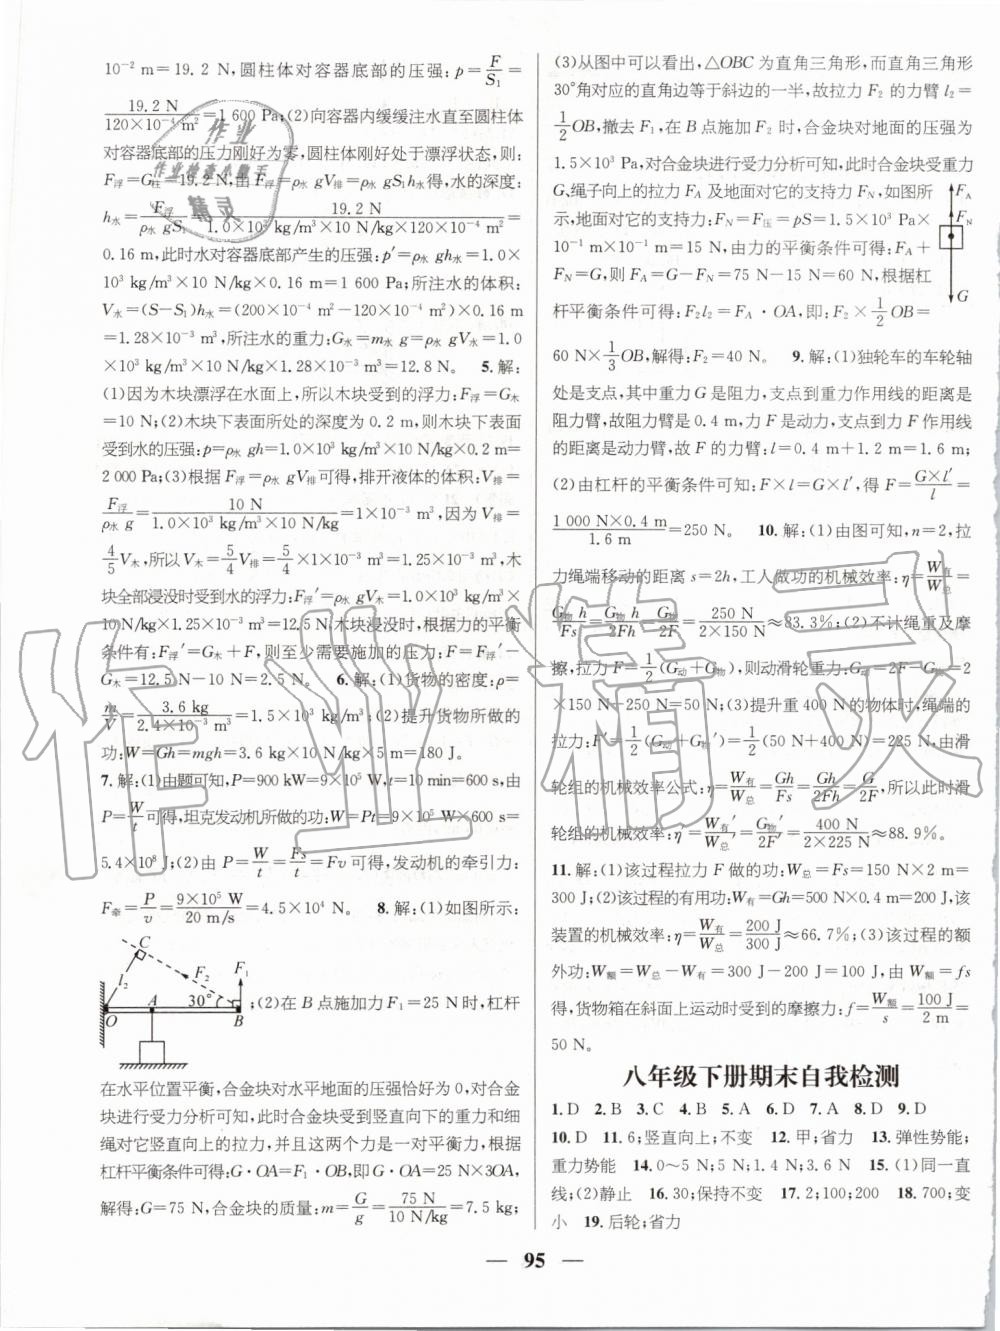 10⁻² m=19.2 N,圆柱体对容器底部的压强:p=F/S₁=
19.2 N/120×10⁻⁴ m²=1 600 Pa;(2)向容器内缓缓注水直至圆柱体
对容器底部的压力刚好为零,圆柱体刚好处于漂浮状态,则:
F浮=G柱=19.2 N,由F浮=ρ水 gV排=ρ水 gS₁h水得,水的深度:
h水=F浮/ρ水 gS₁=19.2 N/1.0×10³ kg/m³×10 N/kg×120×10⁻⁴ m²=
0.16 m,此时水对容器底部产生的压强:p′=ρ水 gh水=1.0×
10³ kg/m³×10 N/kg×0.16 m=1 600 Pa;所注水的体积:
V水=(S−S₁)h水=(200×10⁻⁴ m²−120×10⁻⁴ m²)×0.16 m
=1.28×10⁻³ m³,所注水的重力:G水=m水 g=ρ水 gV水=1.0
×10³ kg/m³×10 N/kg×1.28×10⁻³ m³=12.8 N。 5.解:
(1)因为木块漂浮在水面上,所以木块受到的浮力:F浮=G木
=10 N;(2)木块下表面所处的深度为0.2 m,则木块下表面
受到水的压强:p=ρ水 gh=1.0×10³ kg/m³×10 N/kg×0.2 m=
2 000 Pa;(3)根据F浮=ρ水 gV排可得,排开液体的体积:V排=
F浮/ρ水 g=10 N/1.0×10³ kg/m³×10 N/kg=1×10⁻³ m³,因为V排=
4/5V木,所以V木=5/4V排=5/4×1×10⁻³ m³=1.25×10⁻³ m³,木
块全部浸没时受到水的浮力:F浮′=ρ水 gV木=1.0×10³ kg/m³×10 N/
kg×1.25×10⁻³ m³=12.5 N,木块浸没时,根据力的平衡
条件有:F浮′=G木+F,则至少需要施加的压力:F=F浮′−
G木=12.5 N−10 N=2.5 N。 6.解:(1)货物的密度:ρ=
m/V=3.6 kg/2.4×10⁻³ m³=1.5×10³ kg/m³;(2)提升货物所做的
功:W=Gh=mgh=3.6 kg×10 N/kg×5 m=180 J。
7.解:(1)由题可知,P=900 kW=9×10⁵ W,t=10 min=600 s,由
P=W/t可得,坦克发动机所做的功:W=Pt=9×10⁵ W×600 s=
5.4×10⁸ J;(2)由P=W/t=Fs/t=Fv可得,发动机的牵引力:
F牵=P/v=9×10⁵ W/20 m/s=4.5×10⁴ N。 8.解:(1)如图所示:
C l₂ F₂ F₁ A 30° O B
;(2)在B点施加力F₁=25 N时,杠杆
在水平位置平衡,合金块对水平地面的压强恰好为0,对合金
块进行受力分析可知,此时合金块受到竖直向下的重力和细
绳对它竖直向上的拉力,并且这两个力是一对平衡力,根据
杠杆平衡条件可得:G·OA=F₁·OB,即G·OA=25 N×3OA,
解得:G=75 N,合金块的质量:m=G/g=75 N/10 N/kg=7.5 kg;
(3)从图中可以看出,△OBC为直角三角形,而直角三角形
30°角对应的直角边等于斜边的一半,故拉力F₂的力臂l₂=
1/2OB,撤去F₁,在B点施加F₂时,合金块对地面的压强为
1.5×10³ Pa,对合金块进行受力分析可知,此时合金块受重力
G、绳子向上的拉力FA及地面对它的支持力FN,如图所
示,地面对它的支持力:FN=F压=pS=1.5×10³ Pa×
10⁻¹ m×10⁻¹ m=15 N,由力的平衡条件可得:FA+
FN=G,则FA=G−FN=75 N−15 N=60 N,根据杠
杆平衡条件可得:F₂l₂=FA·OA,即:F₂×1/2OB=
FA FN G
60 N×1/3OB,解得:F₂=40 N。 9.解:(1)独轮车的车轮轴
处是支点,其中重力G是阻力,支点到重力作用线的距离是
阻力臂,故阻力臂是0.4 m,力F是动力,支点到力F作用线
的距离是动力臂,故F的力臂:l=0.4 m+1.2 m=1.6 m;
(2)由杠杆的平衡条件可知:F×l=G×l′,得F=G×l′/l=
1 000 N×0.4 m/1.6 m=250 N。 10.解:(1)由图可知,n=2,拉
力绳端移动的距离s=2h,工人做功的机械效率:η=W有/W总=
G物 h/Fs=G物 h/2Fh=G物/2F=250 N/2×150 N≈83.3%;(2)不计绳重及摩
擦,拉力F=1/2(G动+G物),则动滑轮重力:G动=2F−G物=2
×150 N−250 N=50 N;(3)提升重400 N的物体时,绳端的
拉力:F′=1/2(G动+G物′)=1/2(50 N+400 N)=225 N,由滑
轮组的机械效率公式:η=W有/W总=Gh/Fs=Gh/2Fh=G/2F,所以此时滑
轮组的机械效率:η′=W有′/W总′=G物′/2F′=400 N/2×225 N≈88.9%。
11.解:(1)该过程拉力F做的功:W总=Fs=150 N×2 m=
300 J;(2)该过程的有用功:W有=Gh=500 N×0.4 m=200 J,该
装置的机械效率:η=W有/W总=200 J/300 J≈66.7%;(3)该过程的额
外功:W额=W总−W有=300 J−200 J=100 J,由W额=fs
得,货物箱在斜面上运动时受到的摩擦力:f=W额/s=100 J/2 m=
50 N。
八年级下册期末自我检测
1.D 2.B 3.C 4.B 5.A 6.D 7.A 8.D 9.D
10.D 11.6;竖直向上;不变 12.甲;省力 13.弹性势能;
重力势能 14.0~5 N;5 N;1.4 N;3.6 N 15.(1)同一直
线;(2)静止 16.30;保持不变 17.2;100;200 18.700;变
小 19.后轮;省力
— 95 —
作业精灵
作业
精灵